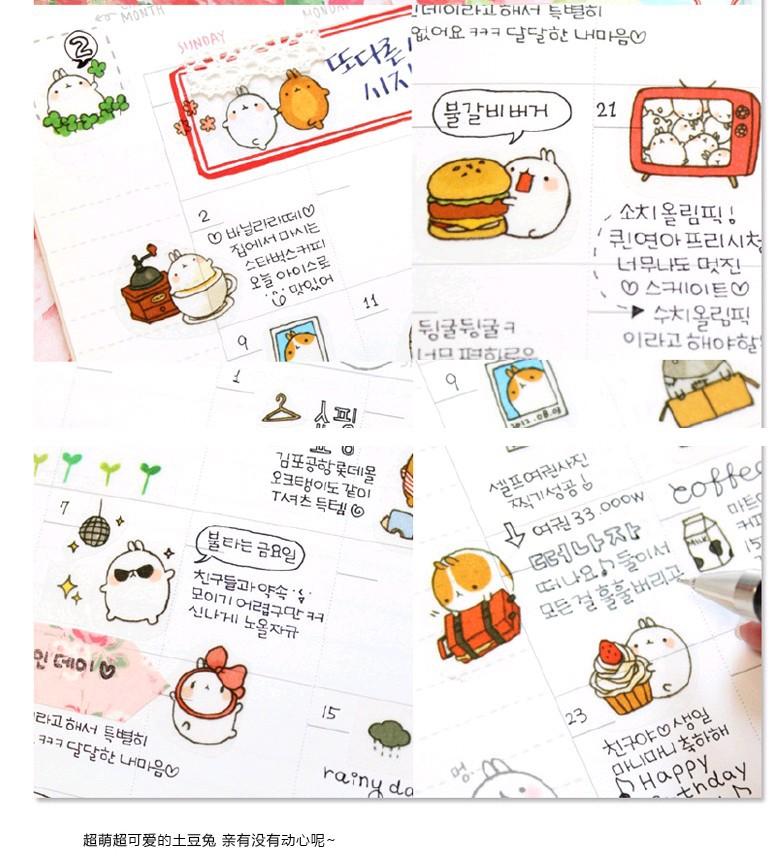 MONTH
2
SUNDAY
MONDAY
또다른
시작
2
바닐라라떼♡
집에서 마시는
스타벅스커피
오늘 아이스로
맛있어
9
11
인데이라고 해서 특별히
없어요 ㅋㅋㅋ 달달한 내마음♡
불갈비버거
21
소치올림픽!
퀸연아 프리시청
너무나도 멋진
♡ 스케이트♡
▶ 수치올림픽
이라고 해야할
뒹굴뒹굴ㅋ
너무 편하로운
1
쇼핑
김포공항롯데몰
오크탱이도 같이
T셔츠 득템
7
불타는 금요일
친구들과 약속
모이기 어렵구만 ㅋㅋ
신나게 노올자규
인데이♡
라고 해서 특별히
ㅋㅋㅋ 달달한 내마음♡
15
rainy da
9
2012.08.08
셀프여권사진
찍기성공!
여권 33.000W
떠나자
떠나요♪ 둘이서
모든걸 훌훌 버리고
coffee
마트
커피
15
MILK
23
친구야♡ 생일
마니마니 축하해
♪ Happy
Birthday ♪
멍.
超萌超可爱的土豆兔 亲有没有动心呢~